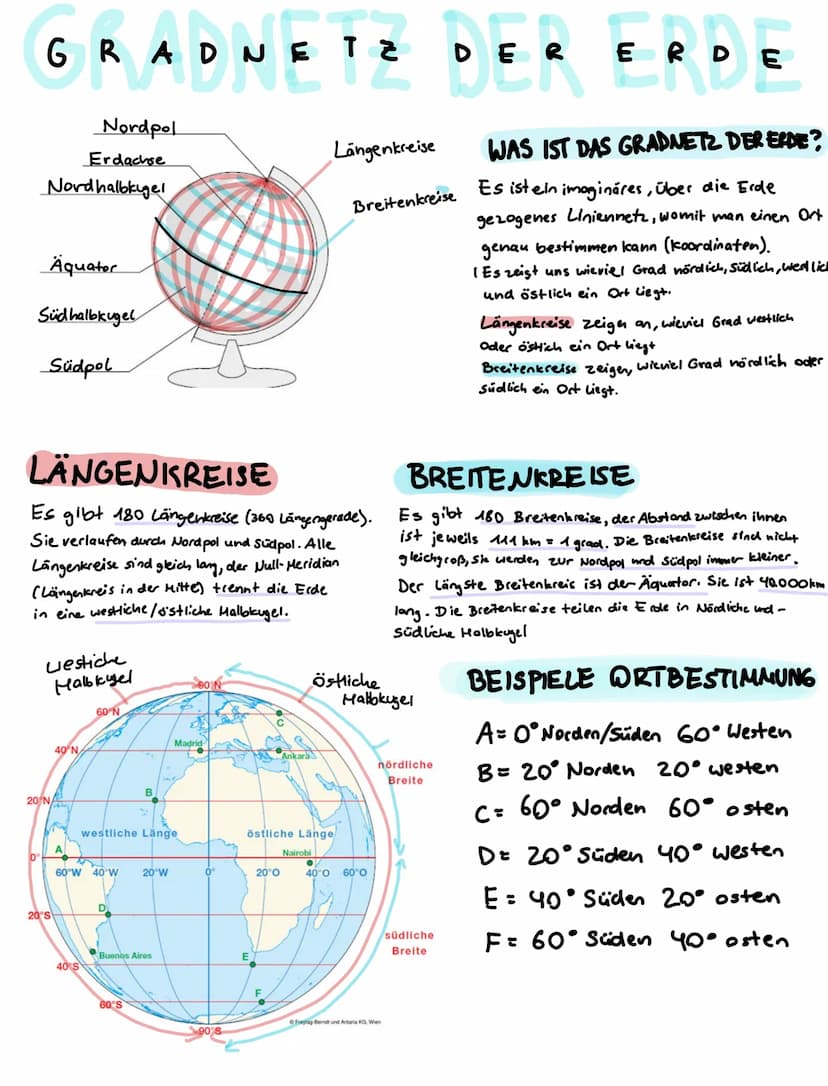 GRADNETZ DER ERDE
Nordpol
Erdachse
Nordhalbkugel
Äquator
Südhalbkugel
Südpol
Längenkreise
Breitenkreise
WAS IST DAS GRADNETZ DER ERDE?
Es ist ein imaginäres, über die Erde
gezogenes Liniennetz, womit man einen Ort
genau bestimmen kann (Koordinaten).
! Es zeigt uns wieviel Grad nördlich, südlich, westlich
und östlich ein Ort liegt.
Längenkreise zeigen an, wieviel Grad westlich
oder östlich ein Ort liegt
Breitenkreise zeigen, wieviel Grad nördlich oder
südlich ein Ort liegt.
LÄNGENKREISE
Es gibt 180 Längenkreise (360 Längengerade).
Sie verlaufen durch Nordpol und Südpol. Alle
Längenkreise sind gleich lang, der Null-Meridian
(Längenkreis in der Mitte) trennt die Erde
in eine westliche/östliche Halbkugel.
BREITENKREISE
Es gibt 180 Breitenkreise, der Abstand zwischen ihnen
ist jeweils 111 km = 1 grad. Die Breitenkreise sind nicht
gleichgroß, sie werden zur Nordpol und Südpol immer kleiner.
Der Längste Breitenkreis ist der Äquator. Sie ist 40.000km
lang. Die Breitenkreise teilen die Erde in Nördliche und -
südliche Halbkugel
westliche
Halbkugel
östliche
Halbkugel
90°N
60°N
C
40°N
Madrid
Ankara
nördliche
Breite
B
20°N
westliche Länge
östliche Länge
A
Nairobi
0°
60°W 40°W 20°W 0° 20°O 40°O 60°O
D
20°S
südliche
Breite
Buenos Aires
E
40°S
F
60°S
90°S
© Freytag-Berndt und Artaria KG, Wien
BEISPIELE ORTBESTIMMUNG
A= 0° Norden/Süden 60° Westen
B= 20° Norden 20° westen
C= 60° Norden 60° osten
D= 20° Süden 40° westen
E= 40° Süden 20° osten
F= 60° Süden 40° osten